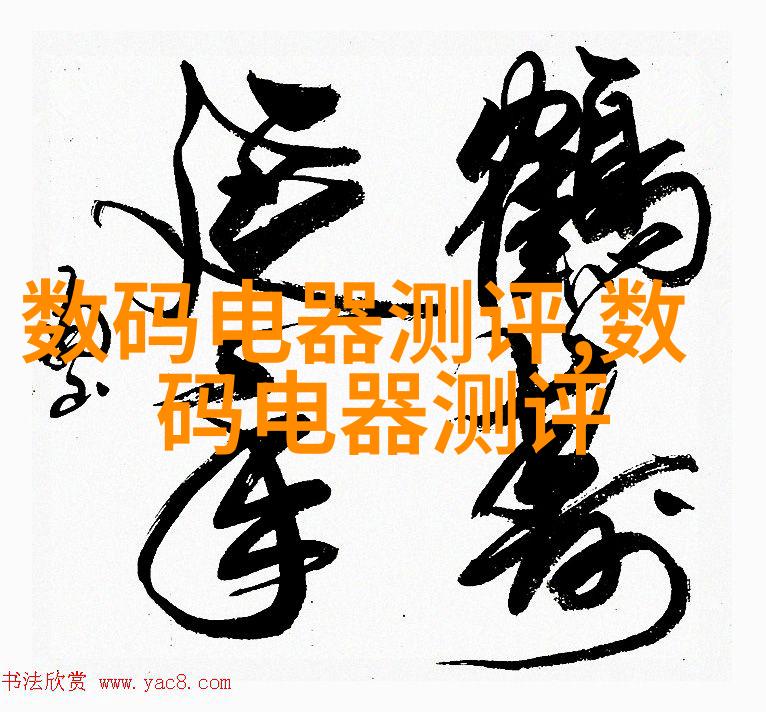 鹤寿
延年
数码电器测评,数
码电器测评
书法欣赏 www.yac8.com